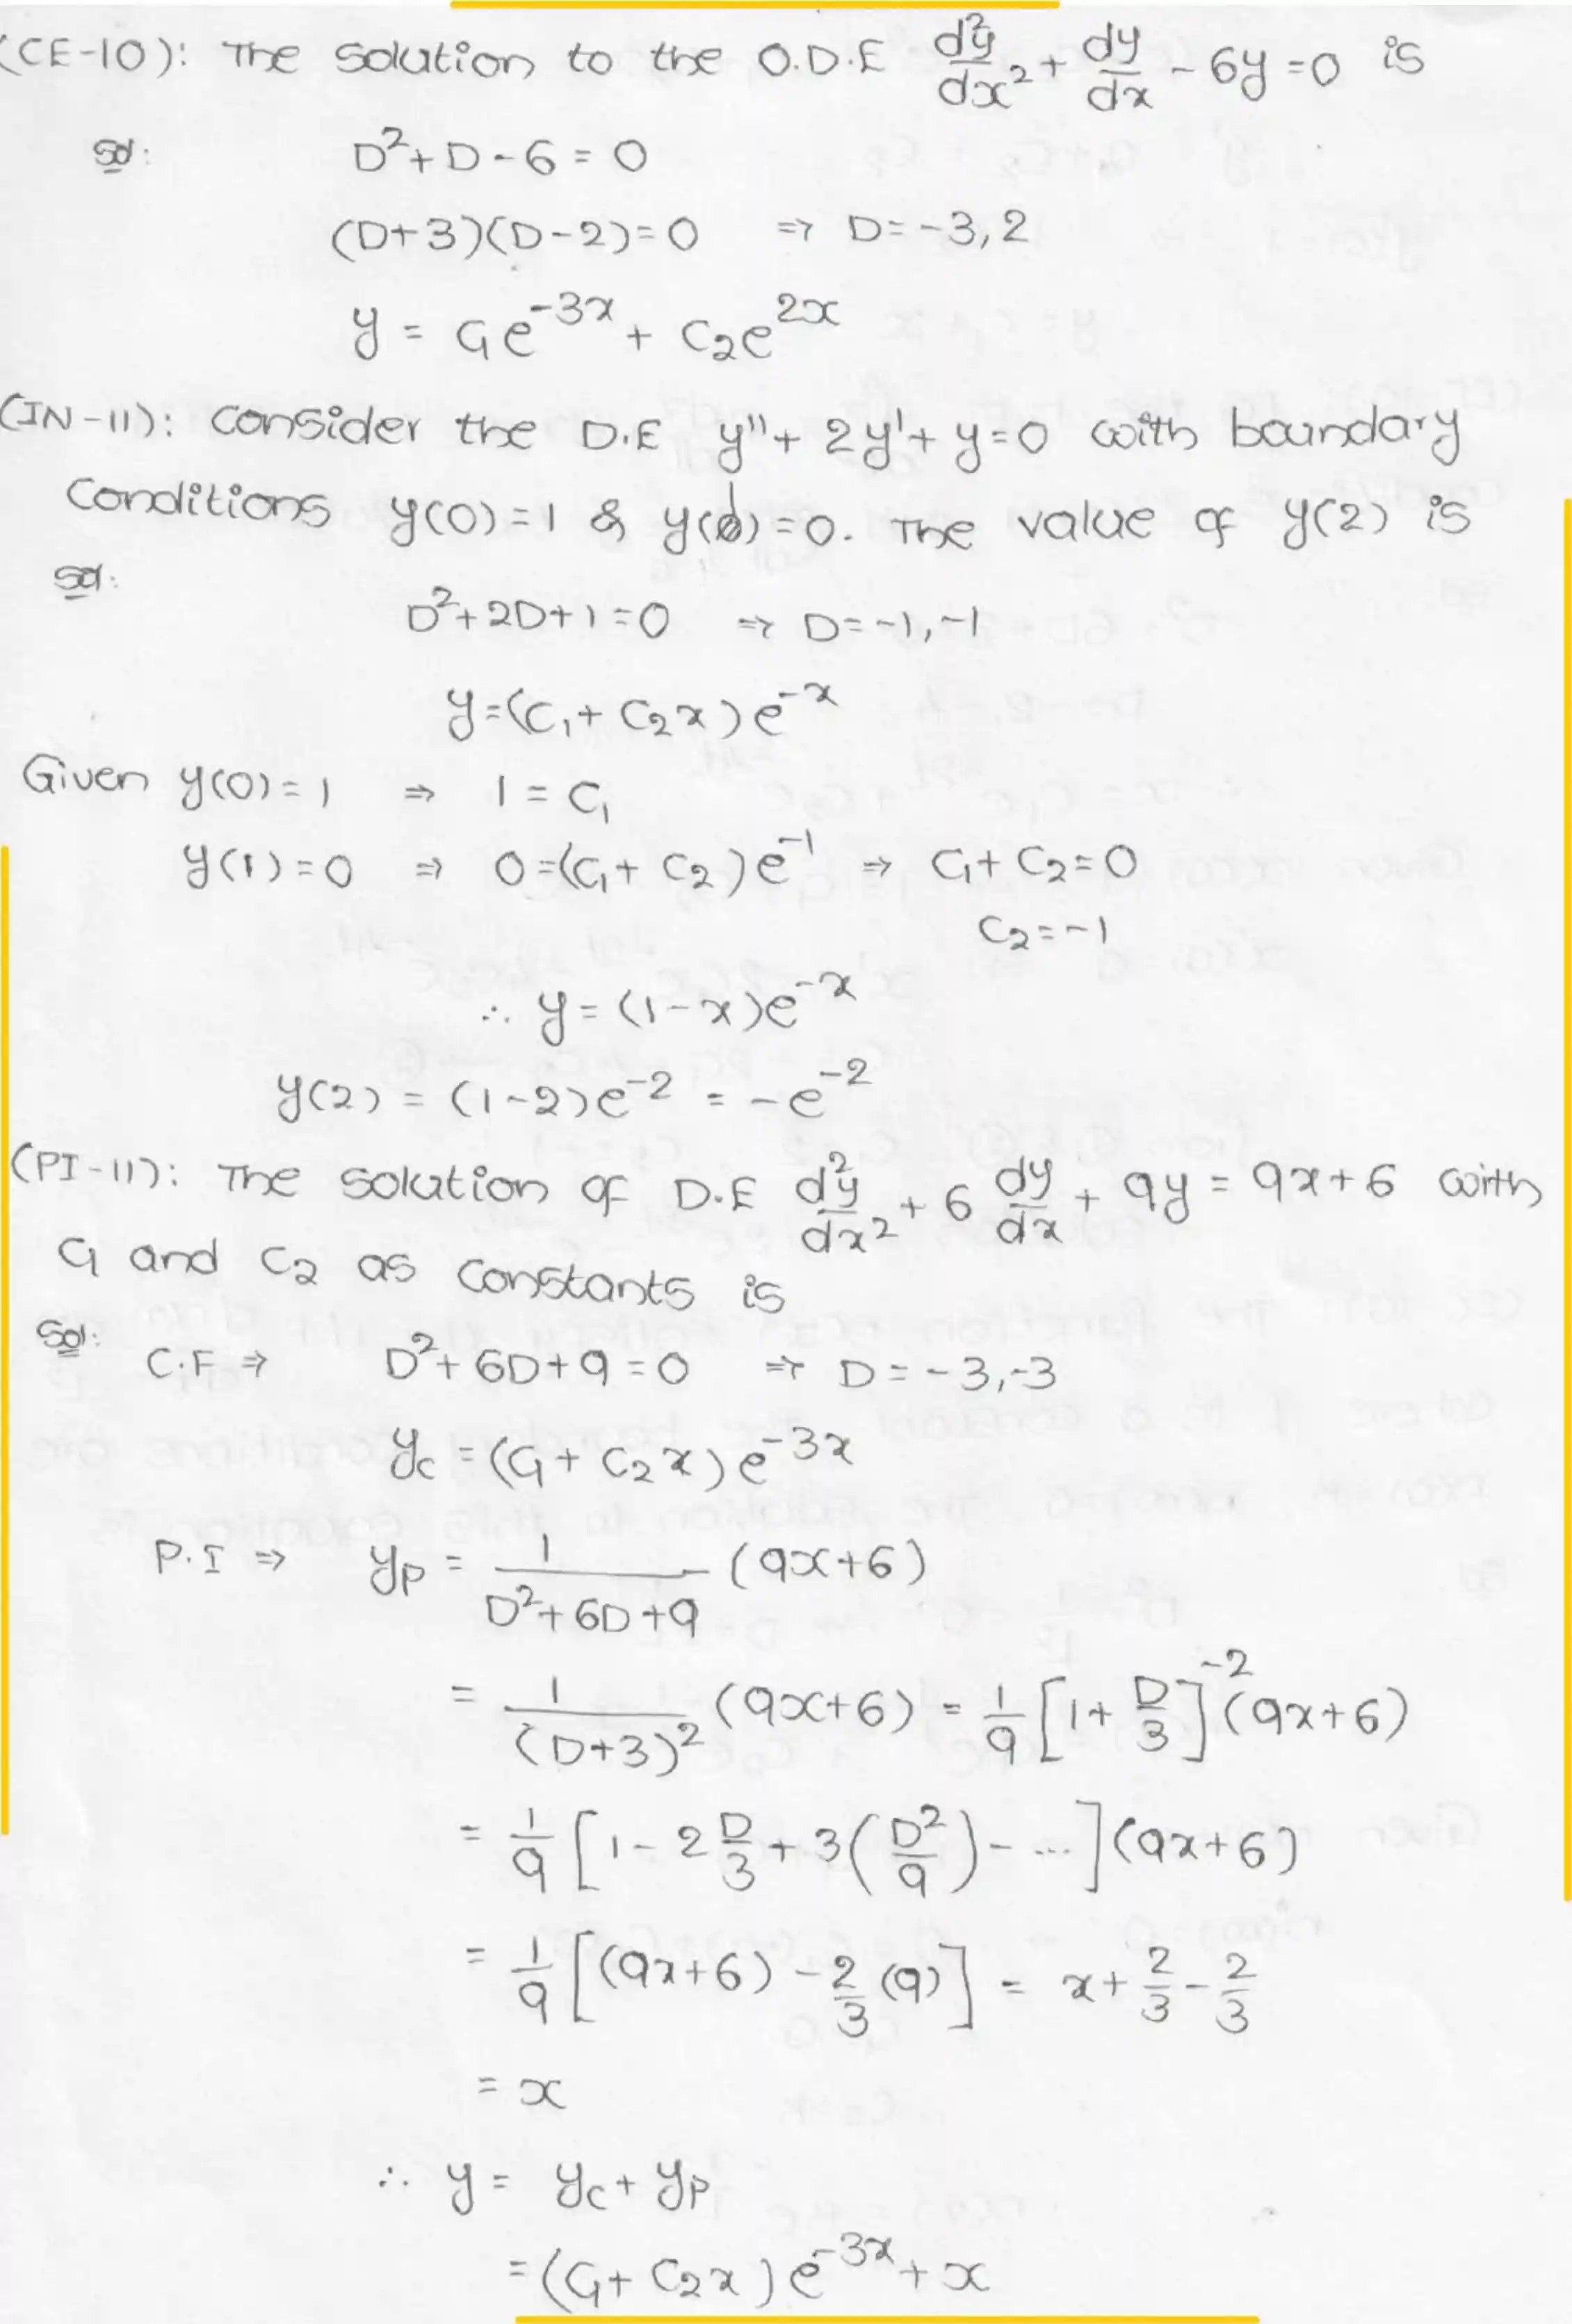 (CE-10): The solution to the O.D.E d²y/dx² + dy/dx - 6y = 0 is
Sol:
D² + D - 6 = 0
(D+3)(D-2) = 0 ⇒ D = -3, 2
y = C₁e^{-3x} + C₂e^{2x}
(IN-11): Consider the D.E y'' + 2y' + y = 0 with boundary
Conditions y(0) = 1 & y(1) = 0. The value of y(2) is
Sol:
D² + 2D + 1 = 0 ⇒ D = -1, -1
y = (C₁ + C₂x)e^{-x}
Given y(0) = 1 ⇒ 1 = C₁
y(1) = 0 ⇒ 0 = (C₁ + C₂)e^{-1} ⇒ C₁ + C₂ = 0
C₂ = -1
∴ y = (1-x)e^{-x}
y(2) = (1-2)e^{-2} = -e^{-2}
(PI-11): The solution of D.E d²y/dx² + 6 dy/dx + 9y = 9x + 6 with
C₁ and C₂ as constants is
Sol:
C.F ⇒ D² + 6D + 9 = 0 ⇒ D = -3, -3
y_c = (C₁ + C₂x)e^{-3x}
P.I ⇒ y_p = 1/(D² + 6D + 9) (9x+6)
= 1/(D+3)² (9x+6) = 1/9 [1 + D/3]^{-2} (9x+6)
= 1/9 [1 - 2 D/3 + 3(D²/9) - ...] (9x+6)
= 1/9 [(9x+6) - 2/3 (9)] = x + 2/3 - 2/3
= x
∴ y = y_c + y_p
= (C₁ + C₂x)e^{-3x} + x